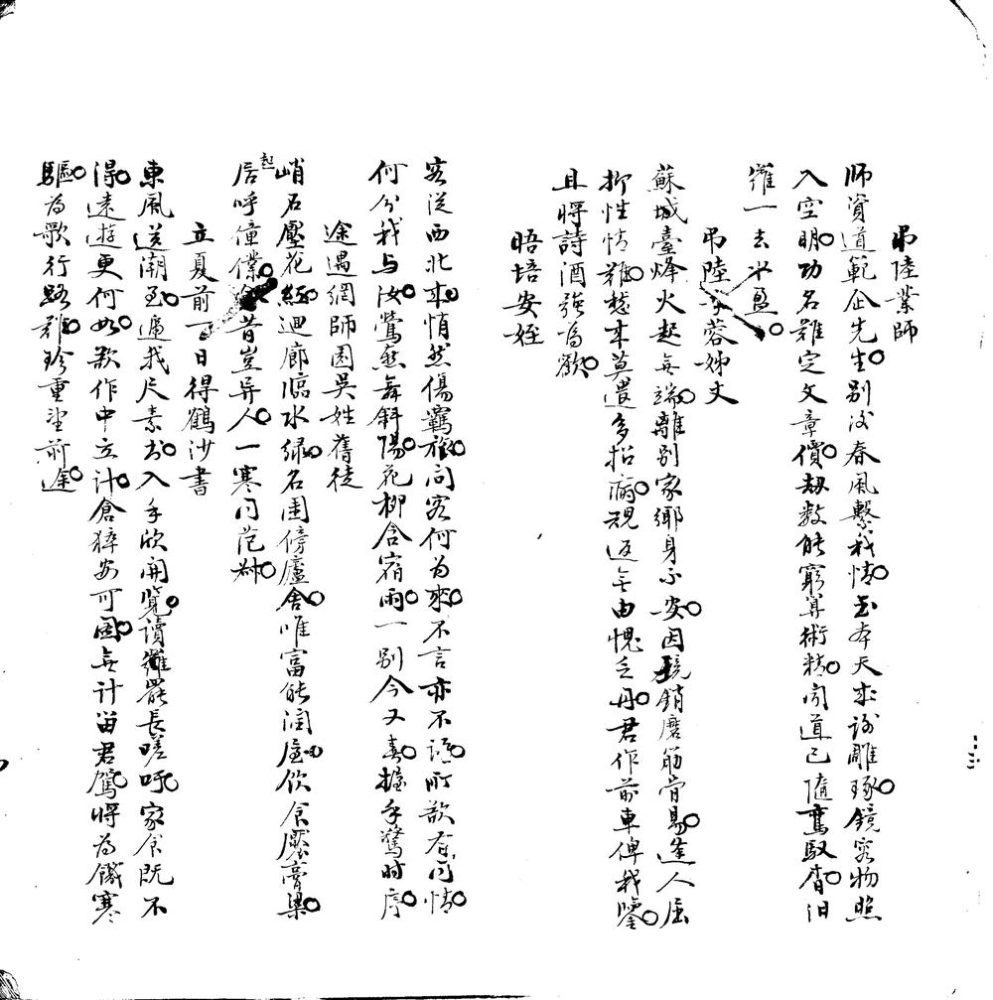 弔陸業師
師資道範企先生○別後春風繫我情○玉本天求詢雕琢○鏡容物照
入空明○功名難定文章價○劫數能窮算術精○聞道已隨鸞馭杳○汩
羅一去水盈○
弔陸蓉姊丈
蘇城臺烽火起無端○離別家鄉身不安○因境銷磨筋骨易○逢人屈
抑性情難○愁本莫遣多招病○規返無由愧乏丹○君作前車俾我鑒○
且將詩酒強為歡○
晤培安姪
客從西北來○悄然傷羈旅○問客何為來○不言亦不語○所欲在同情○
何分我与汝○鶯燕舞斜陽○花柳含宿雨○一別今又春○握手驚時序○
途遇網師園吳姓舊徒
峭石壓花經○迴廊臨水綠○名園傍廬舍○唯富能潤屋○飲食饜膏梁○
起居呼僮僕○昔豈异人○一寒同范叔○
立夏前一百日得鶴沙書
東風送潮至○遞我尺素書○入手欣開覽○讀罷長嗟吁○家食既不
得○遠遊更何如○欲作中立計○倉猝安可圖○無計留君駕○將為饑寒
驅○為歌行路難○珍重望前途○